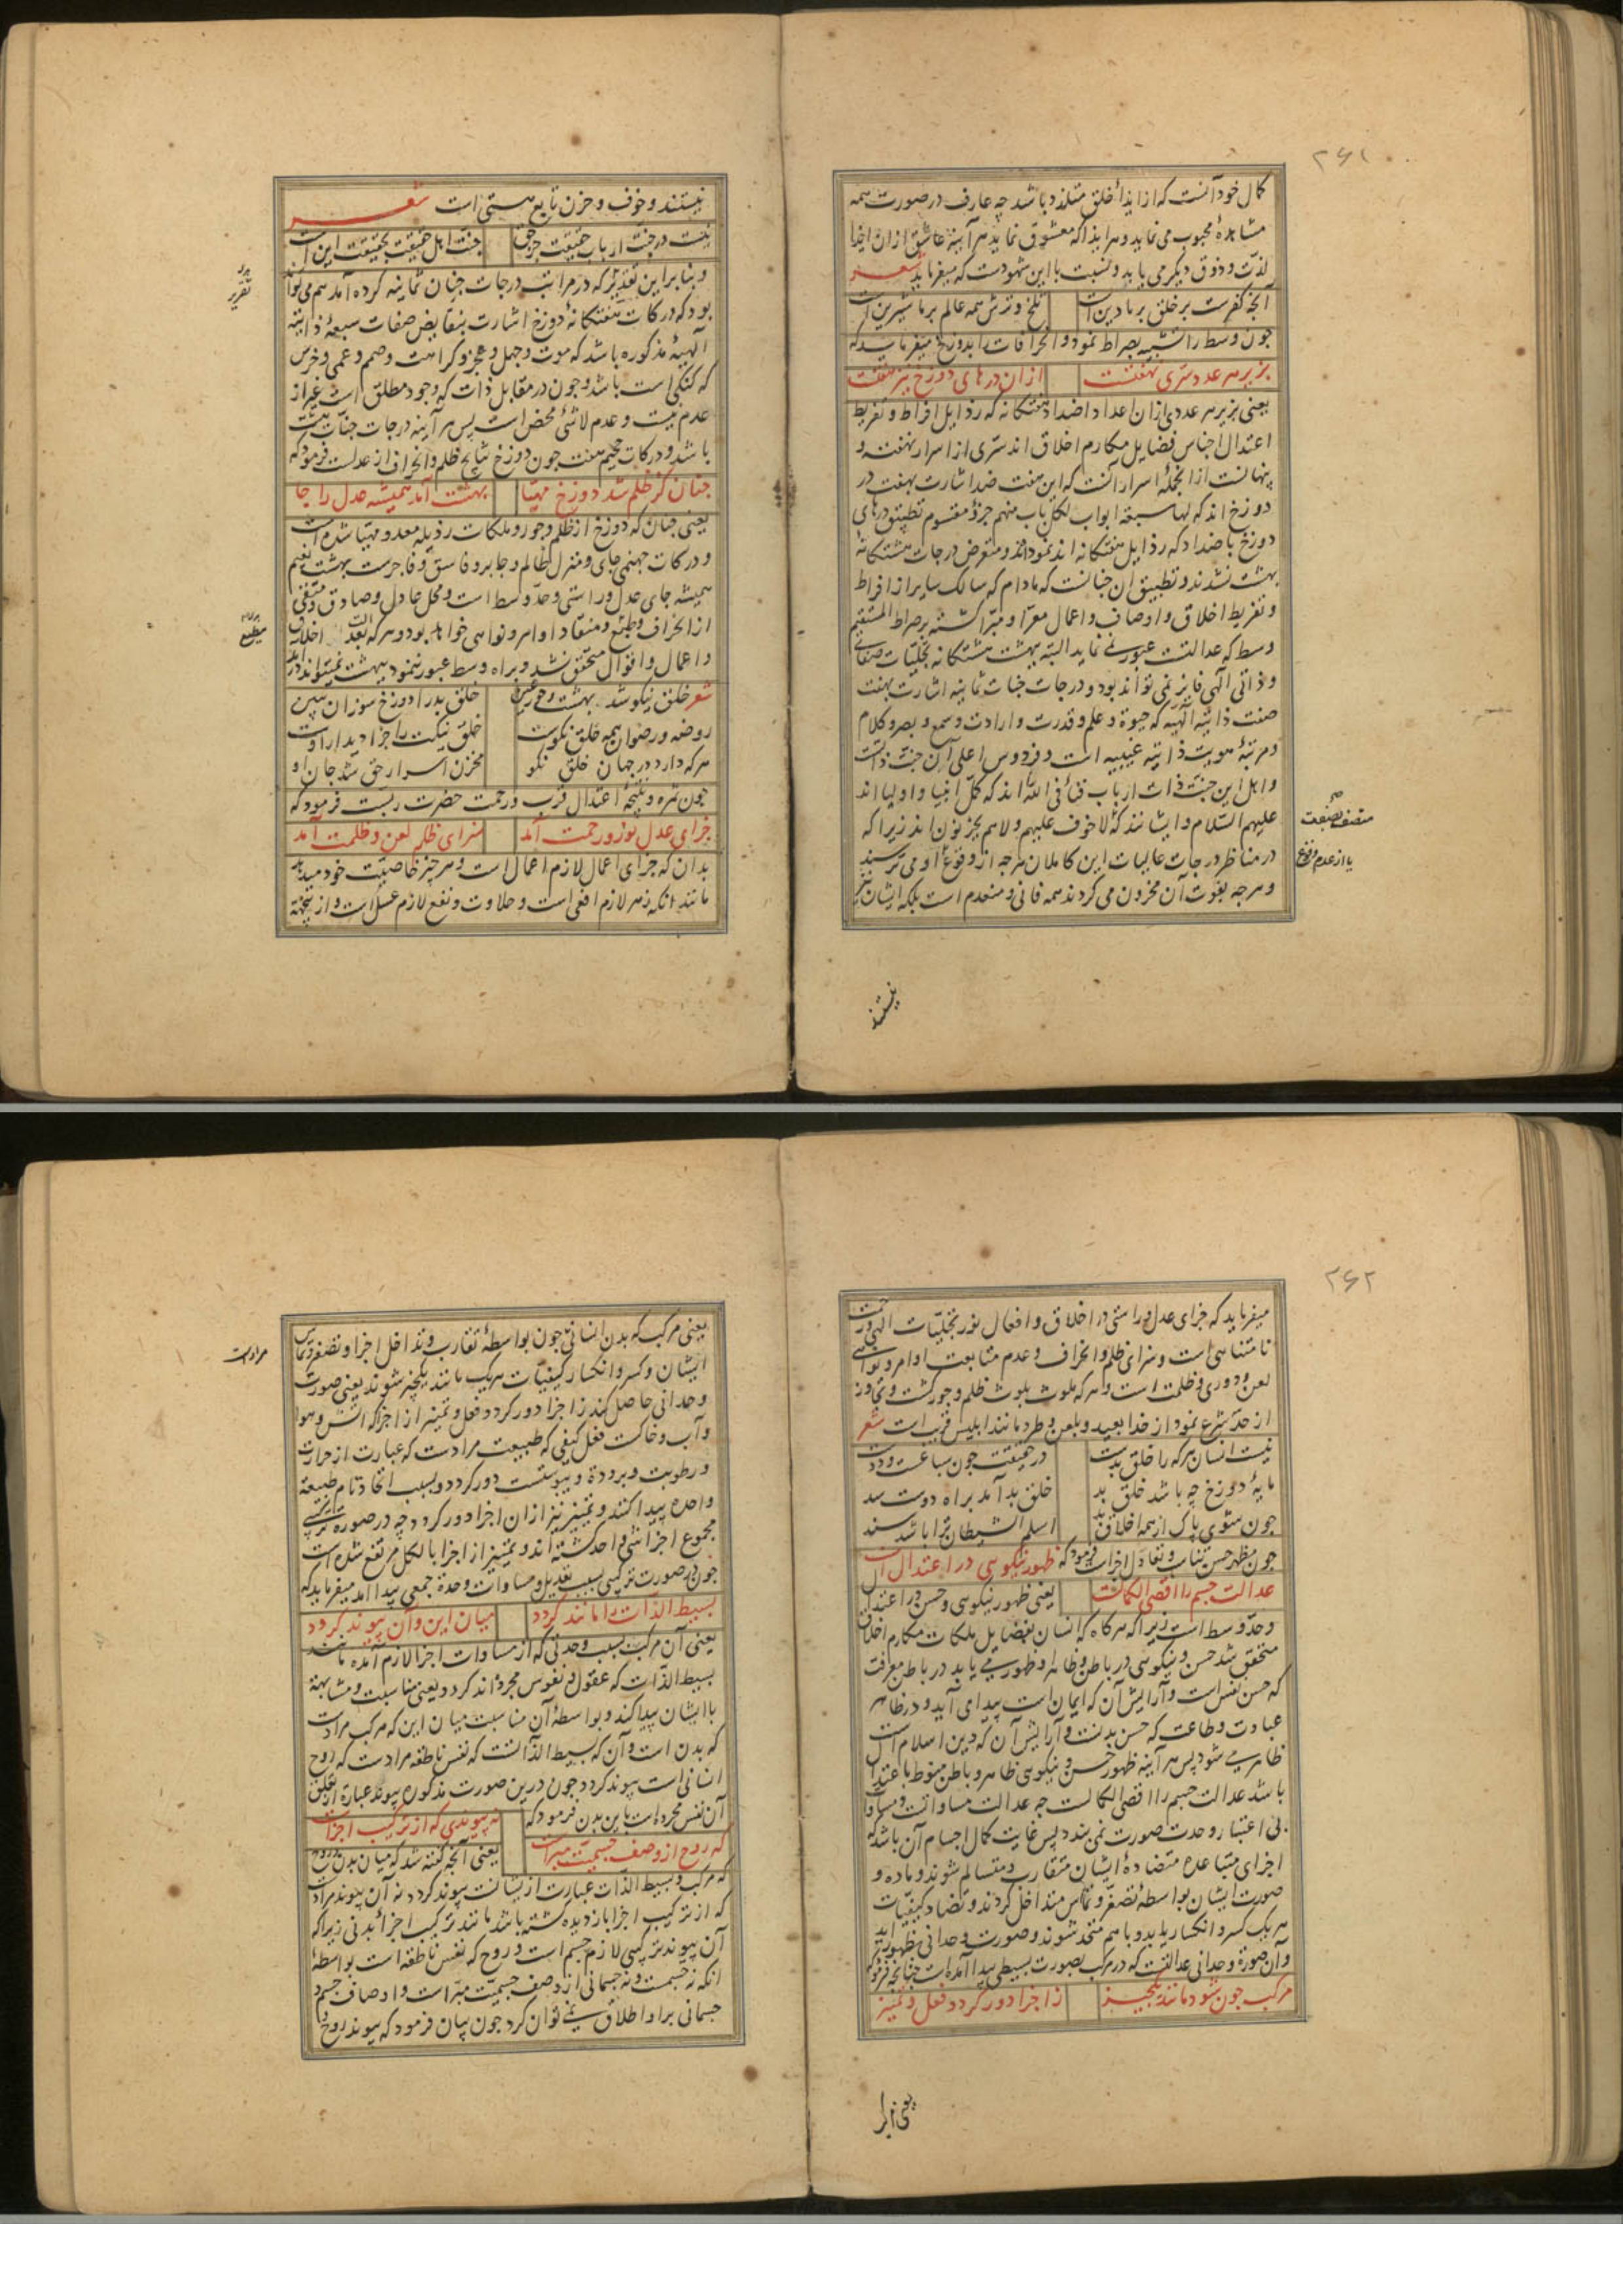 ۲۶۱
کمال خود آنست که از ایذاء خلق متلذذ باشد چه عارف در صورت همه
مشاهدهٔ محبوب می نماید و هر ایذا که معشوق نماید هر آینه عاشق ازان ایذا
لذت و ذوق دیگر می یابد و نسبت با این شهودست که میفرماید شعر
آنچه کفرست بر خلق بر ما دین است تلخ و ترش همه عالم بر ما شیرین است
چون وسط را تشبیه بصراط نمود و انحرافات را بدوزخ میفرماید که
بزیر هر عدد سری نهفتست از ان درهای دوزخ نیز هفتست
یعنی بزیر هر عددی از ان اعداد اضداد هفتکانه که رذایل افراط و تفریط
اعتدال اجناس فضایل مکارم اخلاق اند سری از اسرار نهفته و
پنهانست از انجمله اسرار آنست که این هفت ضد اشارت بهفت در
دوزخ اند که لها سبعة ابواب لکل باب منهم جزؤ مقسوم تطبیق درهای
دوزخ با ضداد که رذایل هفتکانه اند نموده اند و متعرض درجات هشتکانهٔ
بهشت نشدند و تطبیق آن چنانست که مادام که سالک سایر از افراط
و تفریط اخلاق و اوصاف و اعمال معرا و مبرا کشته بر صراط المستقیم
وسط که عدالتست عبور نمی نماید البته بهشت هشتکانه تجلیات صفاتی
و ذاتی الهی فایز نمی تواند بود و درجات جنات ثمانیه اشارت بهفت
صفت ذاتیه الهیه که حیوة و علم و قدرت و ارادت و سمع و بصر و کلام
و مرتبهٔ هویت ذاتیه غیبیه است و فردوس اعلی آن جنت ذاتست
و اهل این جنت ذات ارباب فناء فی الله اند که کمل انبیا و اولیا اند
علیهم السلام و ایشانند که لا خوف علیهم و لاهم یحزنون اند زیرا که
در مناظر درجات عالیات این کاملان هر چه از وقوع او می ترسند
و هر چه بفوت آن محزون می کردند همه فانی و منعدم است بلکه ایشان نیز
متصف بصفت
یا از عدم وقوع
نیستند
نیستند و خوف و حزن تابع هستی است شعر
نیست در جنت ارباب حقیقت جز حق جنت اهل حقیقت بحقیقت این است
و بنا بر این تقدیر که در مراتب درجات جنان ثمانیه کرده آمد هم می تواند
بود که درکات هفتکانهٔ دوزخ اشارت بنقایض صفات سبعهٔ ذاتیه
الهیهٔ مذکوره باشد که موت و جهل و عجز و کراهت و صمم و عمی و خرس
که کنکی است باشد و چون در مقابل ذات که وجود مطلق است غیر از
عدم نیست و عدم لاشئ محض است پس هر آینه درجات جنات هشت
باشد و درکات جحیم هفت چون دوزخ نتایج ظلم و انحراف از عدلست فرمود که
چنان کز ظلم شد دوزخ مهیا بهشت آمد همیشه عدل را جا
یعنی چنان که دوزخ از ظلم و جور و ملکات رذیله معد و مهیا شده است
و درکات جهنمی جای و منزل ظالم و جابر و فاسق و فاجرست بهشت نعیم
همیشه جای عدل و راستی و حد وسط است و محل عادل و صادق و متقی
از انحراف و مطیع و منقاد اوامر و نواهی خواهد بود و هر که بعدالت اخلاق
و اعمال و اقوال متحقق نشد و براه وسط عبور ننمود ببهشت نمیتواند
شعر خلق نیکو شد بهشت و حور عین خلق بد را دوزخ سوزان ببین
روضه و رضوان همه خلق نکوست خلق نیکت را جزا دیدار اوست
هر که دارد در جهان خلق نکو مخزن اسرار حق شد جان او
چون ثمره و نتیجهٔ اعتدال قرب و رحمت حضرت ربست فرمود که
جزای عدل نور و رحمت آمد سزای ظلم لعن و ظلمت آمد
بدان که جزای اعمال لازم اعمال است و هر چیز خاصیت خود میدهد
مانند آنکه زهر لازم افعی است و حلاوت و نفع لازم عسل است و از نتیجه
تقریر
مطیع
۲۶۲
میفرماید که جزای عدل و راستی در اخلاق و افعال نور تجلیات الهی و رحمت
نامتناهی است و سزای ظلم و انحراف و عدم متابعت اوامر و نواهی
لعن و دوری و ظلمت است و هر که ملوث بلوث ظلم و جور کشت و تجاوز
از حد شرع نمود از خدا بعید و بلعن و طرد مانند ابلیس قریب است شعر
نیست انسان هر که را خلق بدست در حقیقت چون سباعست و ددست
مایهٔ دوزخ چه باشد خلق بد خلق بد آمد براه دوست سد
چون شوی پاک از همه اخلاق بد اسلم الشیطان ترا باشد سند
چون مظهر حسن تناسب و تعادل اجزاست فرمود که ظهور نیکویی در اعتدال است
عدالت جسم را اقصی الکمالست یعنی ظهور نیکویی و حسن در اعتدال
و حد وسط است زیرا که هر کاه که انسان بفضایل ملکات مکارم اخلاق
متحقق شد حسن و نیکویی در باطن و ظاهر او ظهور می یابد در باطن معرفت
که حسن نفس است و آرایش آن که ایمان است پیدا می آید و در ظاهر
عبادت و طاعت که حسن بدنست و آرایش آن که دین اسلام است
ظاهر می شود پس هر آینه ظهور حسن و نیکویی ظاهر و باطن منوط باعتدال
باشد عدالت جسم را اقصی الکمالست چه عدالت مساواتست و مساوات
بی اعتبار وحدت صورت نمی بندد پس غایت کمال اجسام آن باشد که
اجزای متباعده متضادهٔ ایشان متقارب و متسالم شوند و ماده و
صورت ایشان بواسطهٔ تصغر و تماس متداخل کردند و تضاد کیفیات
هر یک کسر و انکسار یابد و با هم متحد شوند و صورت وحدانی بظهور آید
و آن صورة وحدانی عدالتست که در مرکب بصورت بسیطی پیدا آمده است چنانچه فرمود که
مرکب چون شود مانند یکچیز ز اجزا دور کردد فعل و تمییز
یعنی مرکب
یعنی مرکب که بدن انسانی چون بواسطهٔ تقارب و تداخل اجزا و تصغر و تماس
ایشان و کسر و انکسار کیفیات هر یک مانند یکچیز شوند یعنی صورت
وحدانی حاصل کند ز اجزا دور کردد فعل و تمییز از اجزا که آتش و هوا
و آب و خاکست فعل کیفی که طبیعت مرادست که عبارت از حرارت
و رطوبت و برودة و یبوستست دور کردد و بسبب اتحاد تام طبیعة
واحده پیدا کنند و تمییز نیز از ان اجزا دور کردد چه در صورة ترکیبی
مجموع اجزا شئ واحد کشته اند و تمییز از اجزا بالکل مرتفع شده است
چون در صورت ترکیبی بسبب تعدیل و مساوات وحدة جمعی پیدا آمد میفرماید که
بسیط الذات را مانند کردد میان این و آن پیوند کردد
یعنی آن مرکب بسبب وحدتی که از مساوات اجزا لازم آمده مانند
بسیط الذات که عقول و نفوس مجرده اند کردد و یعنی مناسبت و مشابهة
با ایشان پیدا کند و بواسطهٔ آن مناسبت میان این که مرکب مرادست
که بدن است و آن که بسیط الذاتست که نفس ناطقه مرادست که روح
انسانی است پیوند کردد چون درین صورت مذکوره پیوند عبارة از تعلق
آن نفس مجرده است باین بدن فرمود که نه پیوندی که از ترکیب اجزاست
که روح از وصف جسمیت مبراست یعنی آنچه کفته شد که میان بدن و روح
که مرکب و بسیط الذات عبارت از ایشانست پیوند کردد نه آن پیوند مرادست
که از ترکیب اجزا بازدیده کشته باشد مانند ترکیب اجزاء بدنی زیرا که
آن پیوند ترکیبی لازم جسم است و روح که نفس ناطقه است بواسطهٔ
آنکه نه جسمست و نه جسمانی از وصف جسمیت مبراست و اوصاف جسم و
جسمانی بر او اطلاق نمی توان کرد چون بیان فرمود که پیوند روح
مرادست